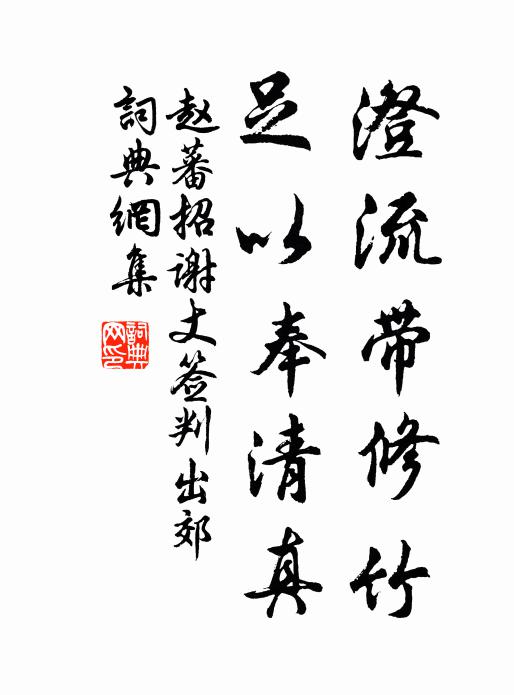 澄流带修竹
足以奉清真
赵蕃招谢丈签判出郊
詞典網集
詞典网印